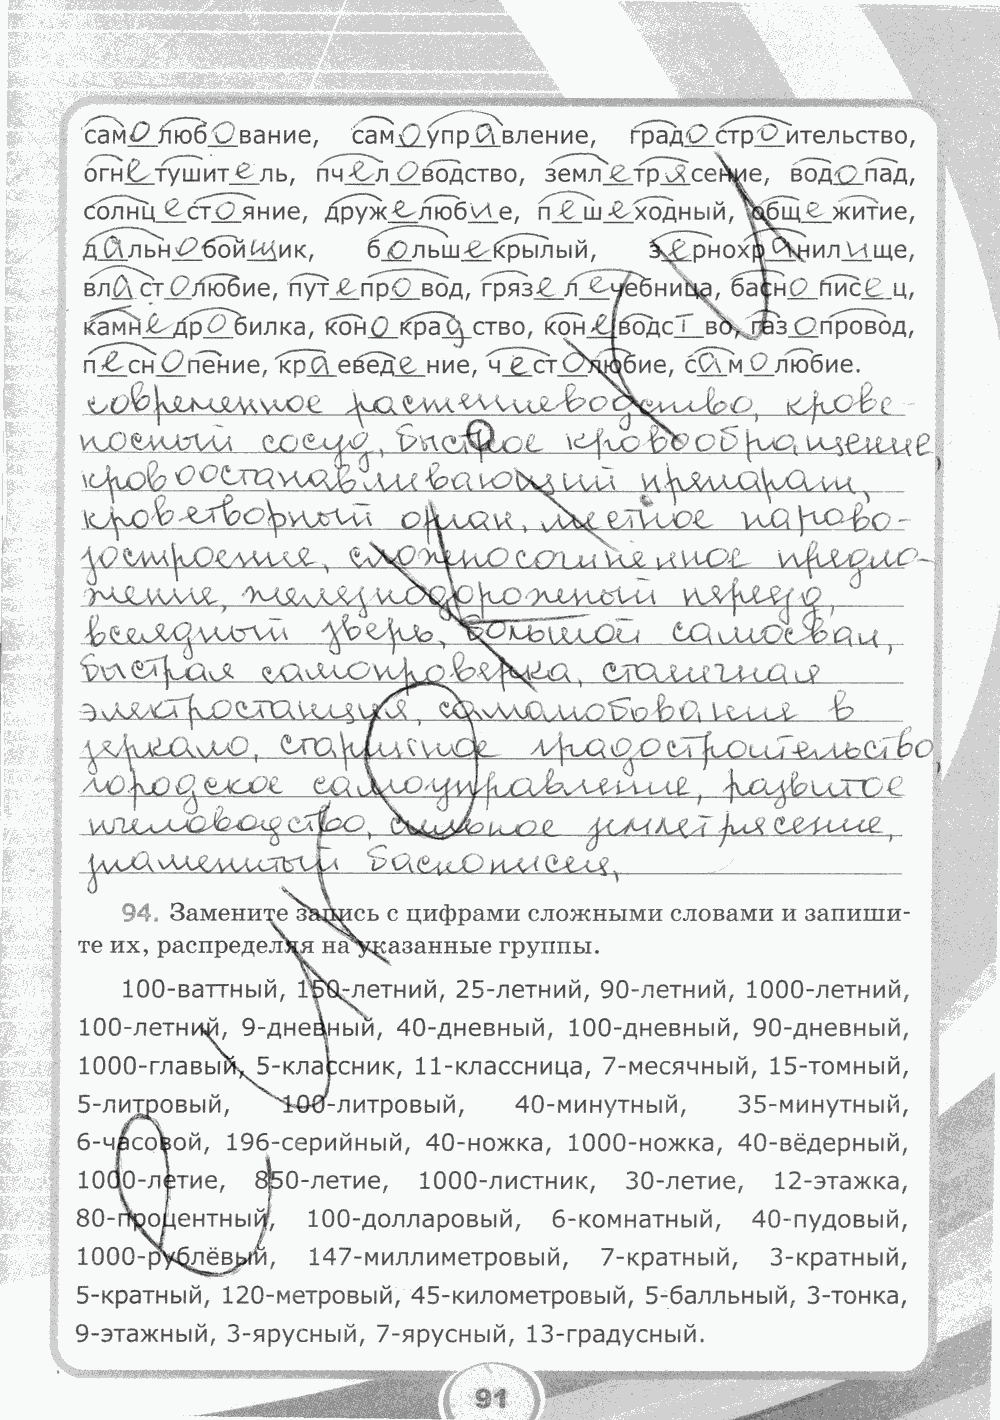 самолюбование, самоуправление, градостроительство,
огнетушитель, пчеловодство, землетрясение, водопад,
солнцестояние, дружелюбие, пешеходный, общежитие,
дальнобойщик, большекрылый, зернохранилище,
властолюбие, путепровод, грязелечебница, баснописец,
камнедробилка, конокрадство, коневодство, газопровод,
песнопение, краеведение, честолюбие, самолюбие.
современное растениеводство, крове-
носный сосуд, быстрое кровообращение,
кровоостанавливающий препарат,
кроветворный орган, местное парово-
зостроение, сложносочиненное предло-
жение, железнодорожный переезд,
всеядный зверь, большой самосвал,
быстрая самопроверка, столичная
электростанция, самолюбование в
зеркало, старинное градостроительство,
городское самоуправление, развитое
пчеловодство, сильное землетрясение,
знаменитый баснописец,
94. Замените запись с цифрами сложными словами и запиши-
те их, распределяя на указанные группы.
100-ваттный, 150-летний, 25-летний, 90-летний, 1000-летний,
100-летний, 9-дневный, 40-дневный, 100-дневный, 90-дневный,
1000-главый, 5-классник, 11-классница, 7-месячный, 15-томный,
5-литровый, 100-литровый, 40-минутный, 35-минутный,
6-часовой, 196-серийный, 40-ножка, 1000-ножка, 40-вёдерный,
1000-летие, 850-летие, 1000-листник, 30-летие, 12-этажка,
80-процентный, 100-долларовый, 6-комнатный, 40-пудовый,
1000-рублёвый, 147-миллиметровый, 7-кратный, 3-кратный,
5-кратный, 120-метровый, 45-километровый, 5-балльный, 3-тонка,
9-этажный, 3-ярусный, 7-ярусный, 13-градусный.
91